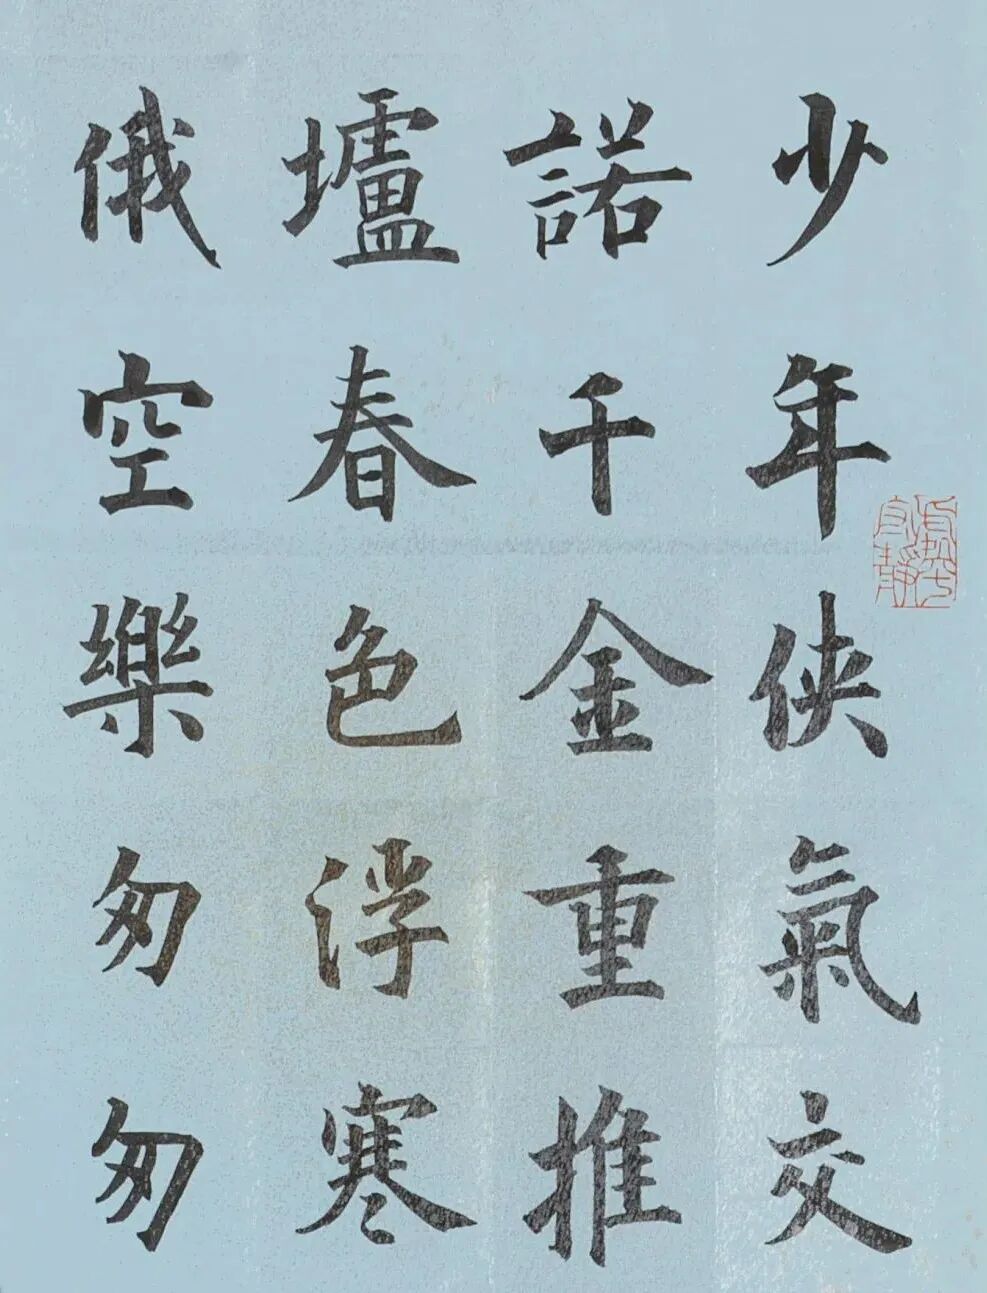 少年俠氣交
諾千金重推
壚春色浮寒
俄空樂匆匆